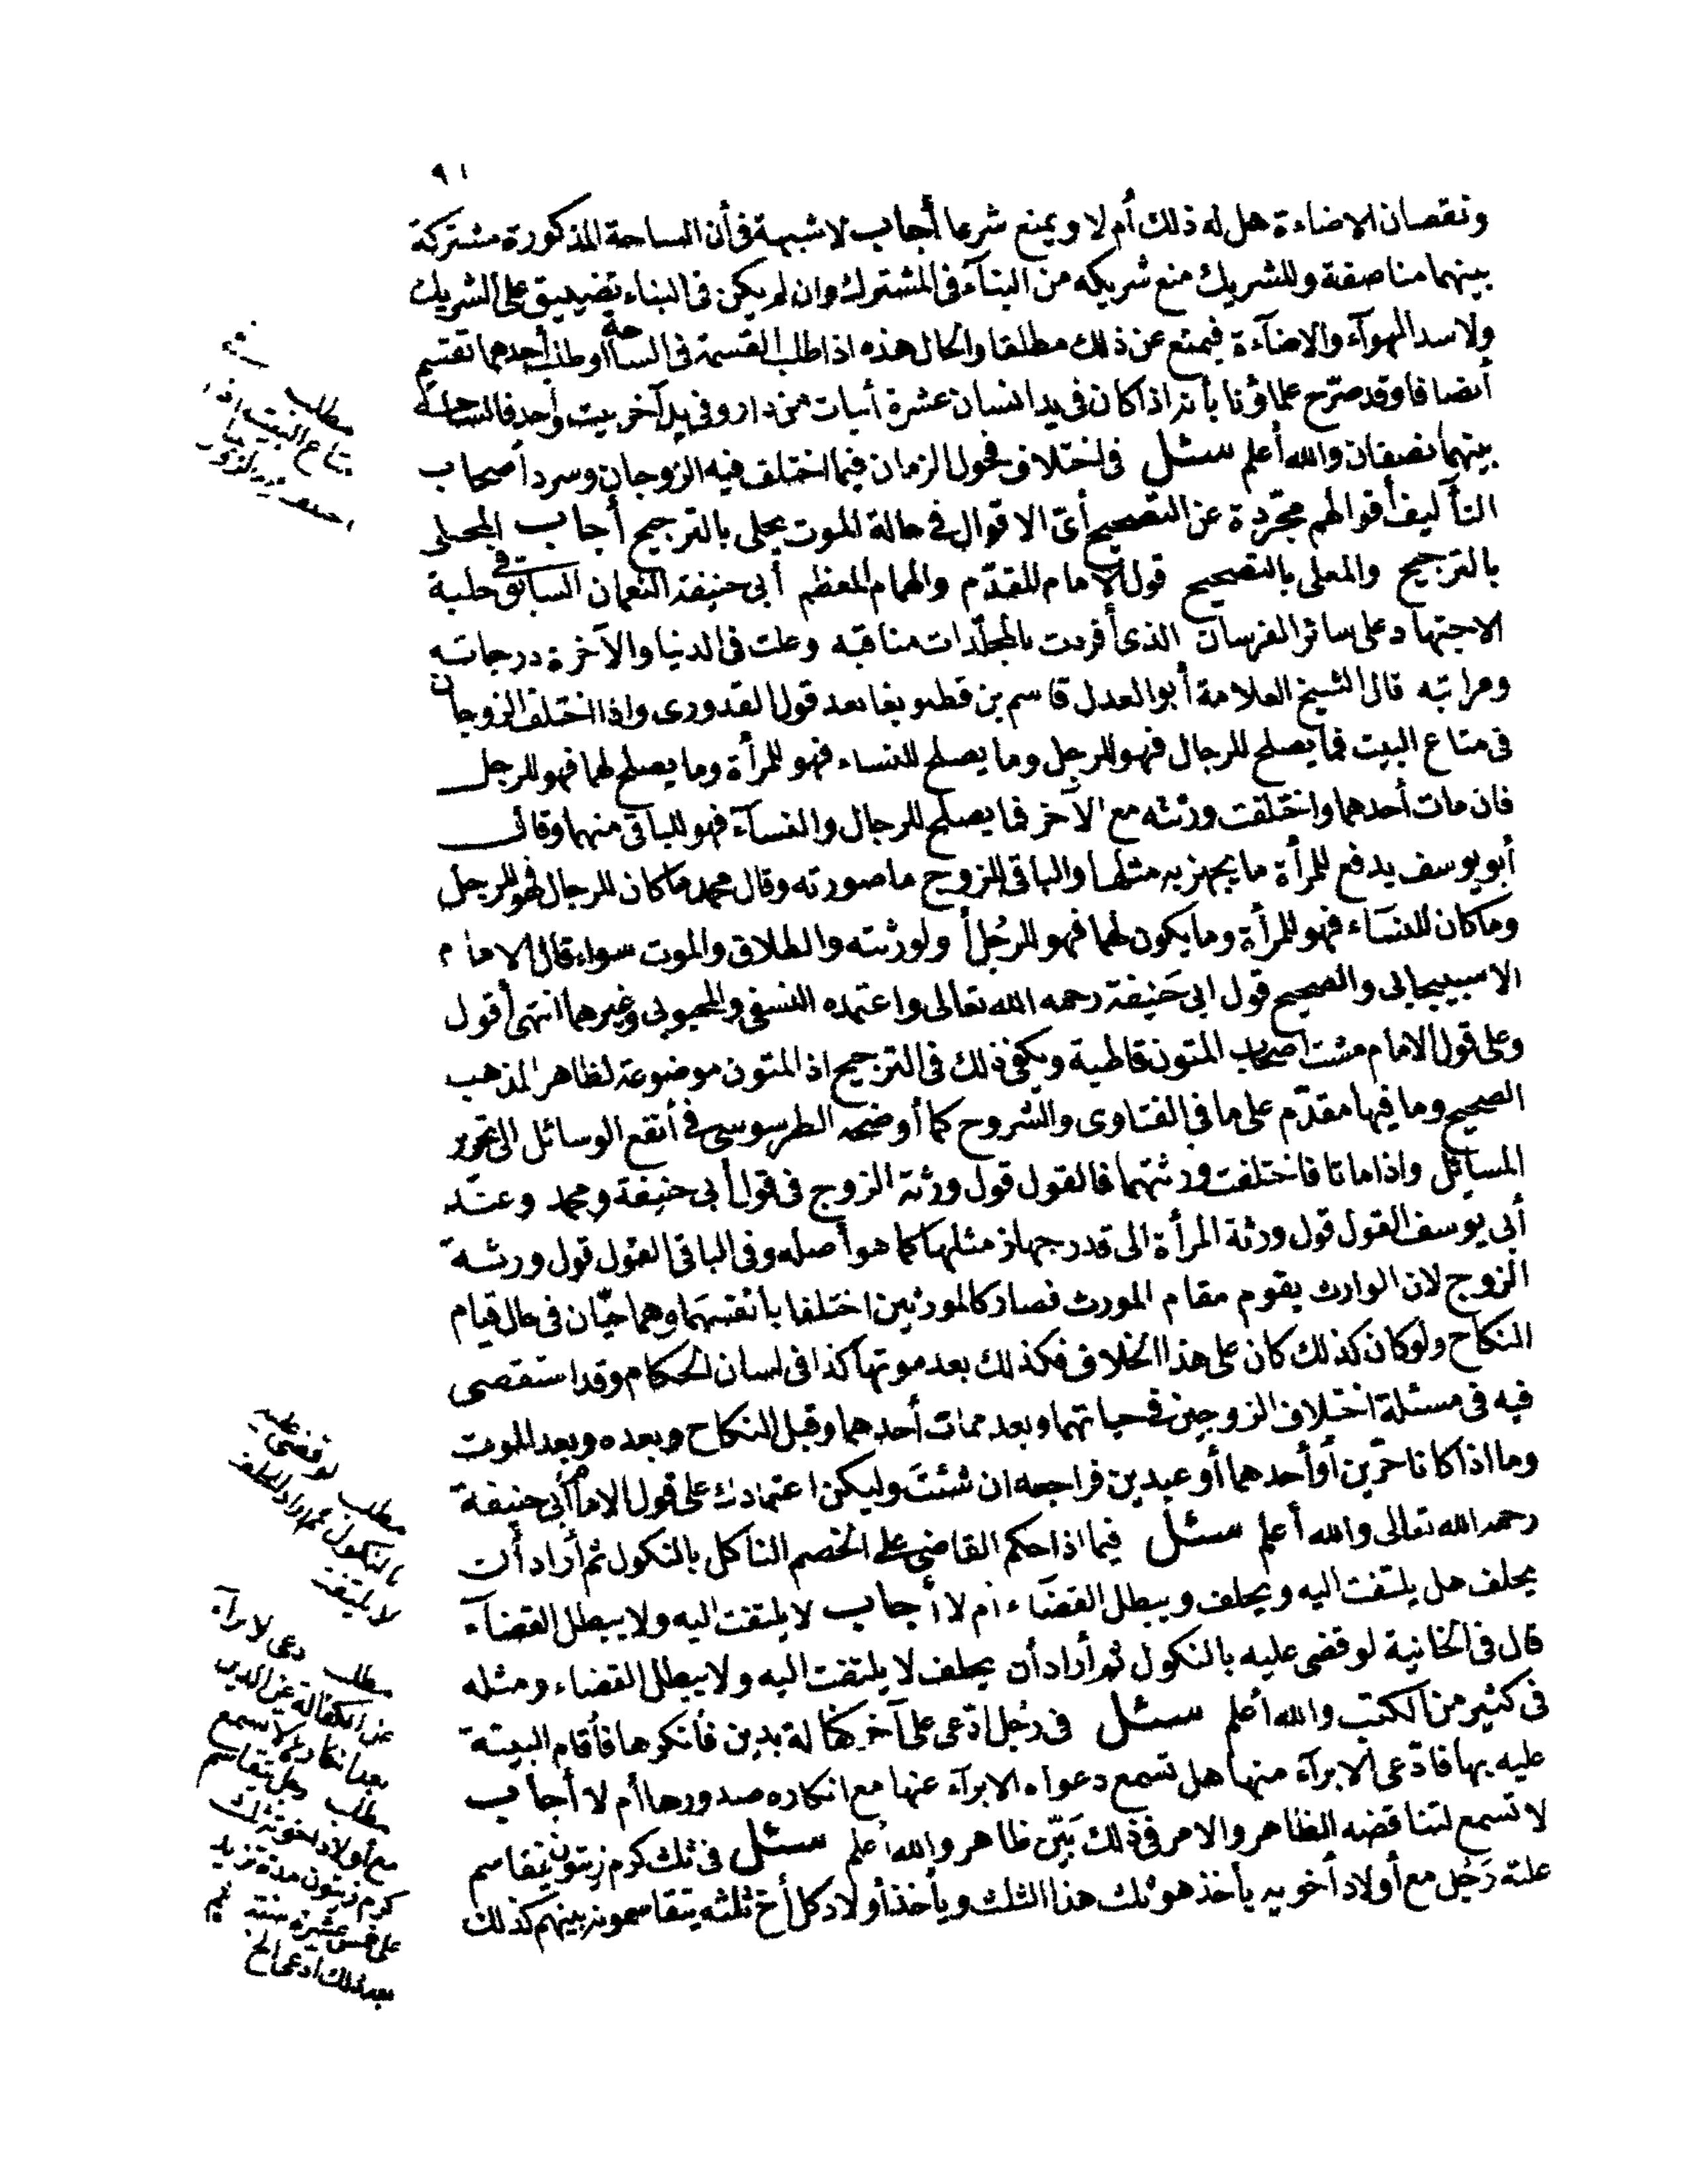 ٩١
ونقصان الاضاءة هل له ذلك أم لا ويمنع شرعا أجاب لا شبهة فى أن الساحة المذكورة مشتركة
بينهما مناصفة وللشريك منع شريكه من البنآء فى المشترك وان لم يكن فى البناء تضييق على الشريك
ولا سد الهوآء والاضآءة فيمنع عن ذلك مطلقا والحال هذه اذا طلب القسمة فى الساحة أو طلب أحدهما تقسم
أنصافا وقد صرّح علماؤنا بأنه اذا كان فى يد انسان عشرة أبيات من دار وفى يد آخر بيت واحد فالساحة
بينهما نصفان والله أعلم سئل فى اختلاف فحول الزمان فيما اختلف فيه الزوجان وسرد أصحاب
التآليف أقوالهم مجرّدة عن التصحيح أىّ الاقوال فى حالة الموت يحلى بالترجيح أجاب المحلى
بالترجيح والمعلى بالتصحيح قول الامام المقدّم والهمام المعظم أبى حنيفة النعمان السابق فى حلبة
الاجتهاد على سائر الفرسان الذى أفردت بالمجلّدات مناقبه وعلت فى الدنيا والآخرة درجاته
ومراتبه قال الشيخ العلامة أبو العدل قاسم بن قطلوبغا بعد قول القدورى واذا اختلف الزوجان
فى متاع البيت فما يصلح للرجال فهو للرجل وما يصلح للنساء فهو للمرأة وما يصلح لهما فهو للرجل
فان مات أحدهما واختلفت ورثته مع الآخر فما يصلح للرجال والنسآء فهو للباقى منهما وقال
أبو يوسف يدفع للمرأة ما يجهز به مثلها والباقى للزوج ما صورته وقال محمد ما كان للرجال فهو للرجل
وما كان للنساء فهو للمرأة وما يكون لهما فهو للرجل أ ولورثته والطلاق والموت سواء قال الامام
الاسبيجابى والصحيح قول ابى حنيفة رحمه الله تعالى واعتمده النسفى والمحبوبى وغيرهما انتهى أقول
وعلى قول الامام مشت أصحاب المتون قاطبة ويكفى ذلك فى الترجيح اذ المتون موضوعة لظاهر المذهب
الصحيح وما فيها مقدّم على ما فى الفتاوى والشروح كما أوضحه الطرسوسى فى أنفع الوسائل الى تحرير
المسائل واذا ماتا فاختلفت ورثتهما فالقول قول ورثة الزوج فى قول أبى حنيفة ومحمد وعند
أبى يوسف القول قول ورثة المرأة الى قدر جهاز مثلها كما هو أصله وفى الباقى القول قول ورثة
الزوج لان الوارث يقوم مقام المورث فصار كالمورثين اختلفا بأنفسهما وهما حيّان فى حال قيام
النكاح ولو كان كذلك كان على هذا الخلاف فكذلك بعد موتهما كذا فى لسان الحكام وقد استقصى
فيه فى مسئلة اختلاف الزوجين فى حياتهما وبعد ممات أحدهما وقبل النكاح وبعده وبعد الموت
وما اذا كانا حرّين أو أحدهما أو عبدين فراجعه ان شئت وليكن اعتمادك على قول الامام أبى حنيفة
رحمه الله تعالى والله أعلم سئل فيما اذا حكم القاضى على الخصم الناكل بالنكول ثم أراد أن
يحلف هل يلتفت اليه ويحلف ويبطل القضاء أم لا أجاب لا يلتفت اليه ولا يبطل القضآء
قال فى الخانية لو قضى عليه بالنكول ثم أراد أن يحلف لا يلتفت اليه ولا يبطل القضاء ومثله
فى كثير من الكتب والله أعلم سئل فى رجل ادّعى على آخر كفالة بدين فأنكرها فأقام البينة
عليه بها فادّعى الابرآء منها هل تسمع دعواه الابرآء عنها مع انكاره صدورها أم لا أجاب
لا تسمع لتناقضه الظاهر والامر فى ذلك بيّن ظاهر والله أعلم سئل فى ثلث كرم زيتون يتقاسم
غلته رجل مع أولاد أخويه يأخذ هو ثلث هذا الثلث ويأخذ أولاد كل أخ ثلثه يتقاسمونه بينهم كذلك
مطلب
متاع البيت اذا
مطلب لو قضى عليه
بالنكول ثم أراد الحلف
لا يلتفت
مطلب دعى الابرآء
عن الكفالة عن الدين
بعد انكاره لا تسمع
مطلب رجل يتقاسم
مع أولاد اخوته ثلث
كرم زيتون مدة تزيد
على خمس عشرة سنة ثم
بعد ذلك ادعى الخ